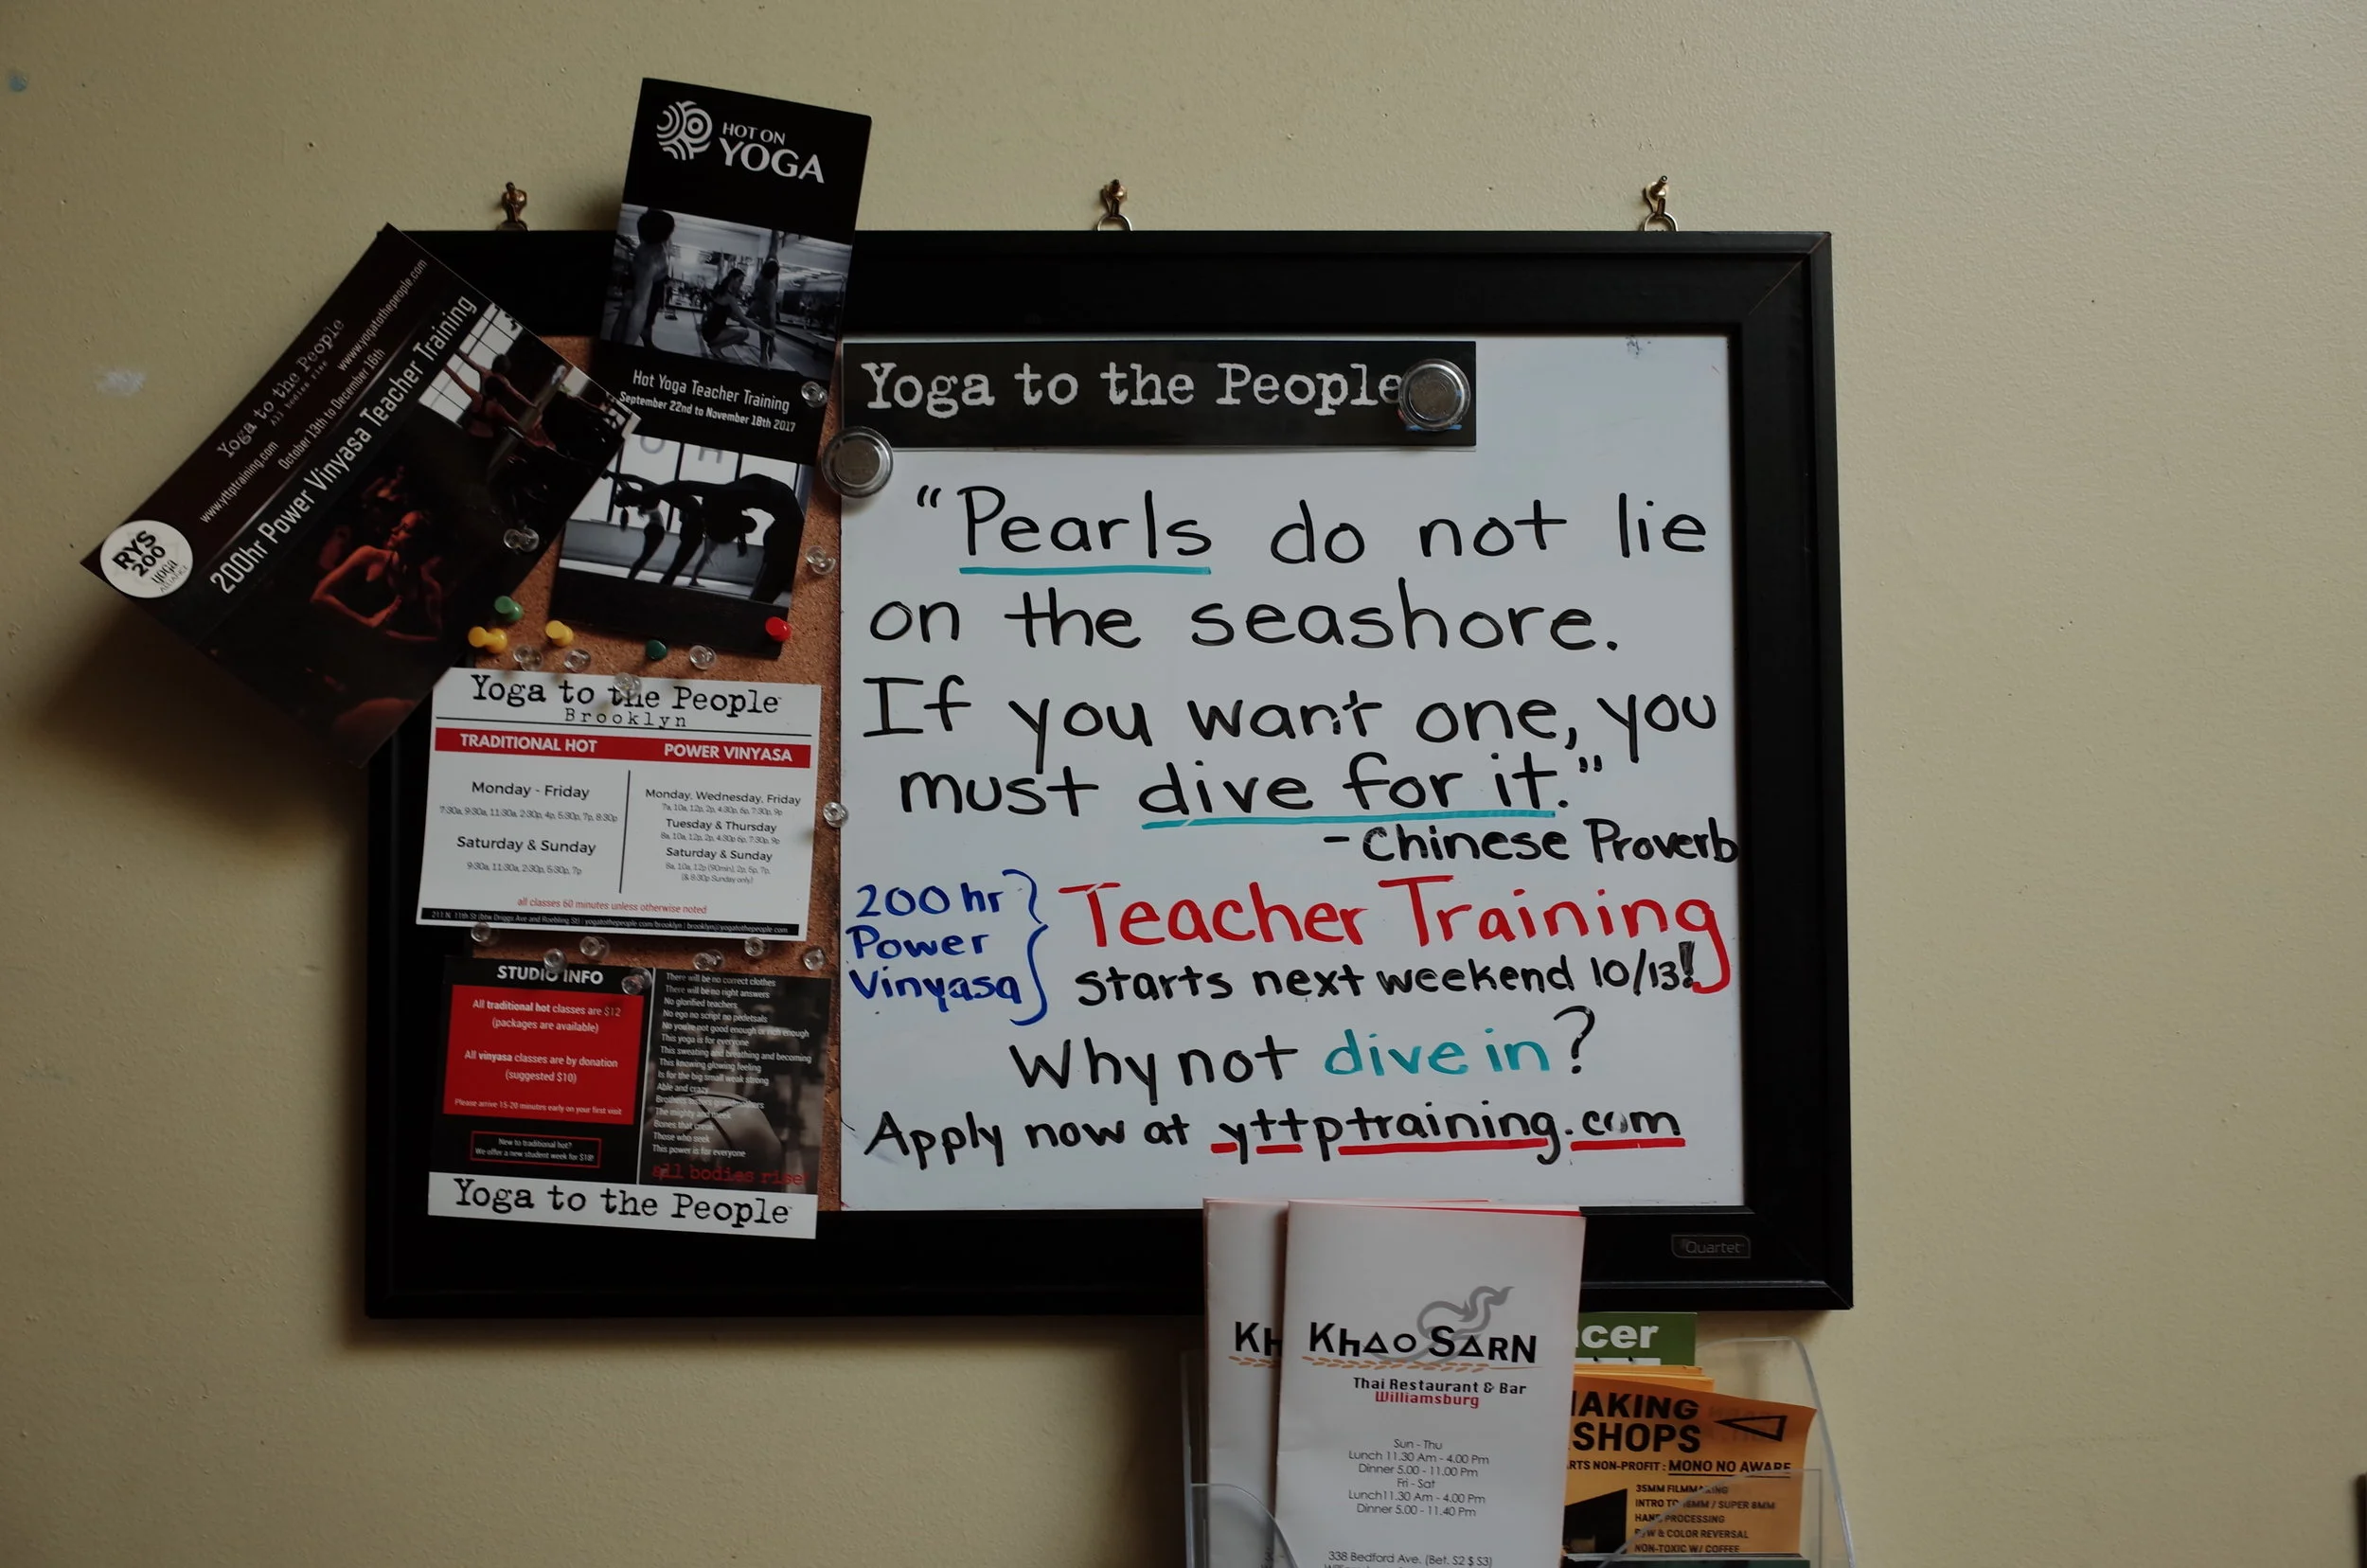 HOT ON
YOGA
Hot Yoga Teacher Training
September 22nd to November 18th 2017
Yoga to the People
All bodies rise
www.yttptraining.com
wwww.yogatothepeople.com
October 13th to December 16th
200hr Power Vinyasa Teacher Training
RYS
200
yoga
ALLIANCE
Yoga to the People
Brooklyn
TRADITIONAL HOT
Monday - Friday
7:30a, 9:30a, 11:30a, 2:30p, 4p, 5:30p, 7p, 8:30p
Saturday & Sunday
9:30a, 11:30a, 2:30p, 5:30p, 7p
POWER VINYASA
Monday, Wednesday, Friday
7a, 10a, 12p, 2p, 4:30p, 6p, 7:30p, 9p
Tuesday & Thursday
8a, 10a, 12p, 2p, 4:30p 6p, 7:30p, 9p
Saturday & Sunday
8a, 10a, 12p (90min), 2p, 5p, 7p,
(& 8:30p Sunday only)
all classes 60 minutes unless otherwise noted
211 N. 11th St (btw Driggs Ave and Roebling St) | yogatothepeople.com/brooklyn | brooklyn@yogatothepeople.com
STUDIO INFO
All traditional hot classes are $12
(packages are available)
All vinyasa classes are by donation
(suggested $10)
Please arrive 15-20 minutes early on your first visit
New to traditional hot?
We offer a new student week for $18!
There will be no correct clothes
There will be no right answers
No glorified teachers
No ego no script no pedetsals
No you're not good enough or rich enough
This yoga is for everyone
This sweating and breathing and becoming
This knowing glowing feeling
Is for the big small weak strong
Able and crazy
Brothers sisters grandmothers
The mighty and meek
Bones that creak
Those who seek
This power is for everyone
all bodies rise
Yoga to the People
Yoga to the People
“Pearls do not lie
on the seashore.
If you want one, you
must dive for it.”
- Chinese Proverb
200 hr
Power
Vinyasa
Teacher Training
starts next weekend 10/13!
Why not dive in?
Apply now at yttptraining.com
Quartet
Kh
KhAO SARN
Thai Restaurant & Bar
Williamsburg
Sun - Thu
Lunch 11.30 Am - 4.00 Pm
Dinner 5.00 - 11.00 Pm
Fri - Sat
Lunch11.30 Am - 4.00 Pm
Dinner 5.00 - 11.40 Pm
338 Bedford Ave. (Bet. S2 $ S3)
cer
AKING
SHOPS
RTS NON-PROFIT : MONO NO AWARE
35MM FILMMAKING
INTRO TO 16MM / SUPER 8MM
HAND PROCESSING
B/W & COLOR REVERSAL
NON-TOXIC W/ COFFEE